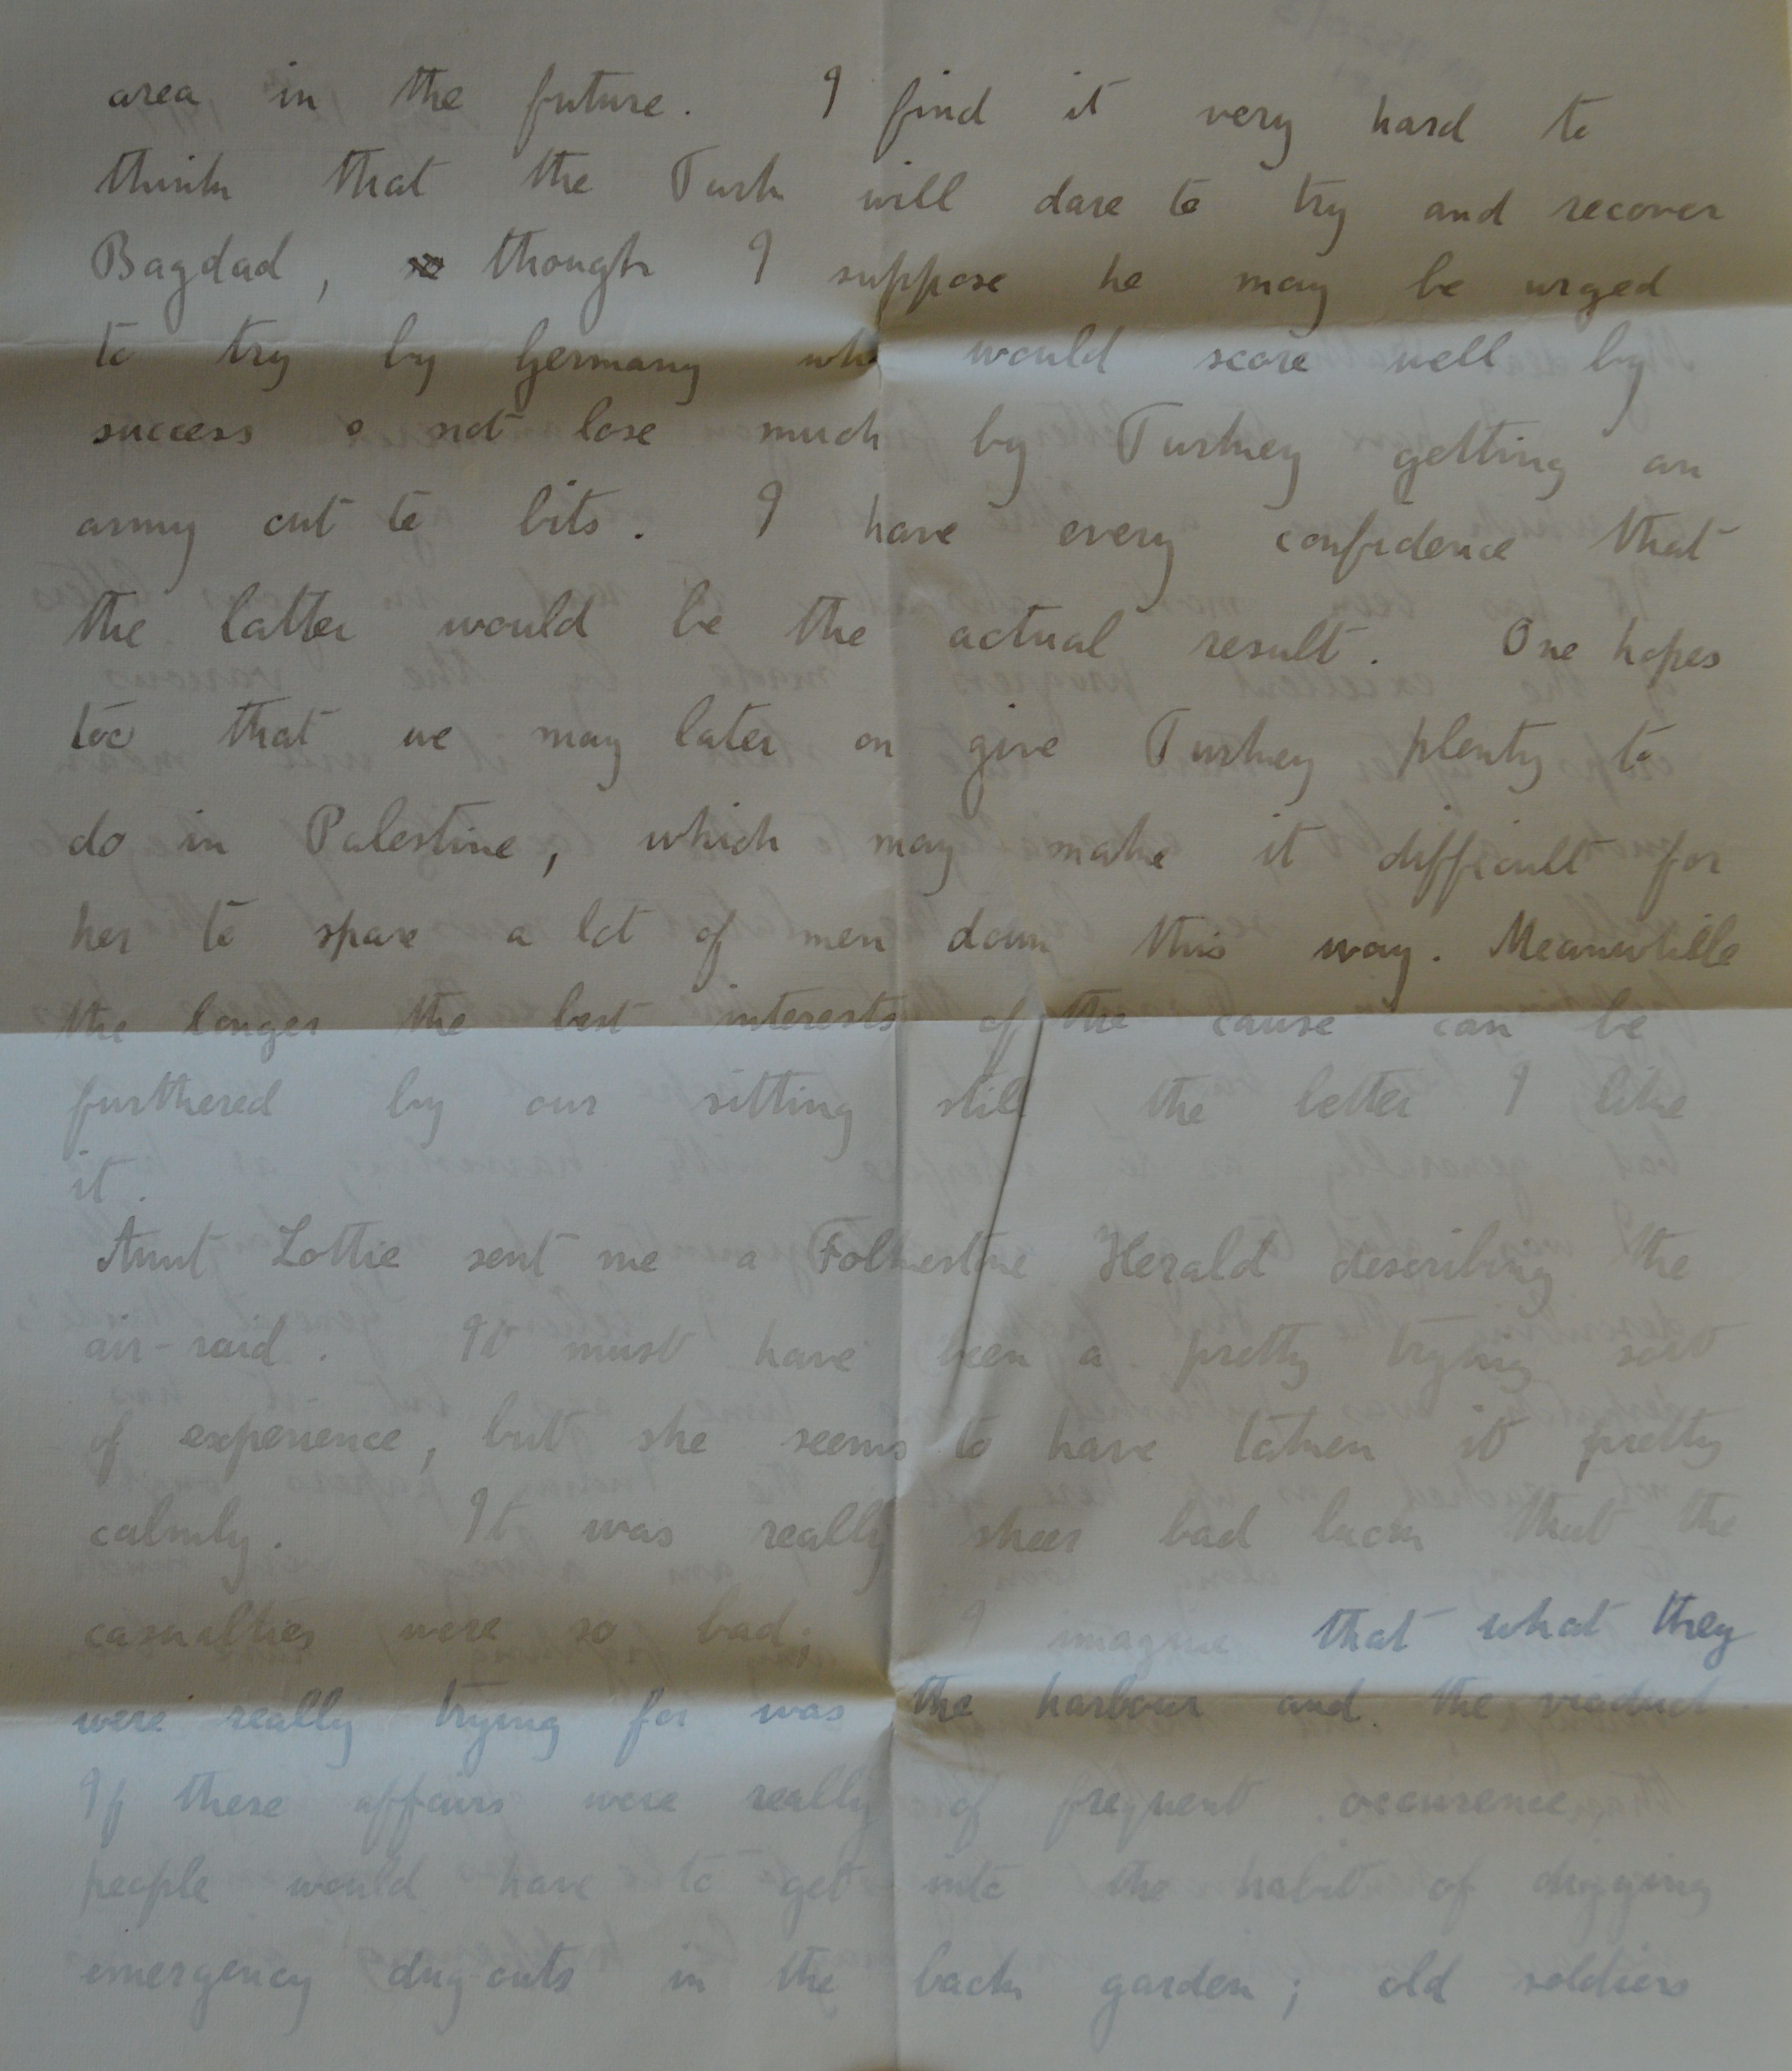 area in the future. I find it very hard to
think that the Turk will dare to try and recover
Bagdad, though I suppose he may be urged
to try by Germany who would score well by
success & not lose much by Turkey getting an
army cut to bits. I have every confidence that
the latter would be the actual result. One hopes
too that we may later on give Turkey plenty to
do in Palestine, which may make it difficult for
her to spare a lot of men down this way. Meanwhile
the longer the best interests of the cause can be
furthered by our sitting still, the better I like
it.
Aunt Lottie sent me a Folkestone Herald describing the
air-raid. It must have been a pretty trying sort
of experience, but she seems to have taken it pretty
calmly. It was really sheer bad luck that the
casualties were so bad; I imagine that what they
were really trying for was the harbour and the viaduct.
If these affairs were really of frequent occurence,
people would have to get into the habit of digging
emergency dug-outs in the back garden; old soldiers